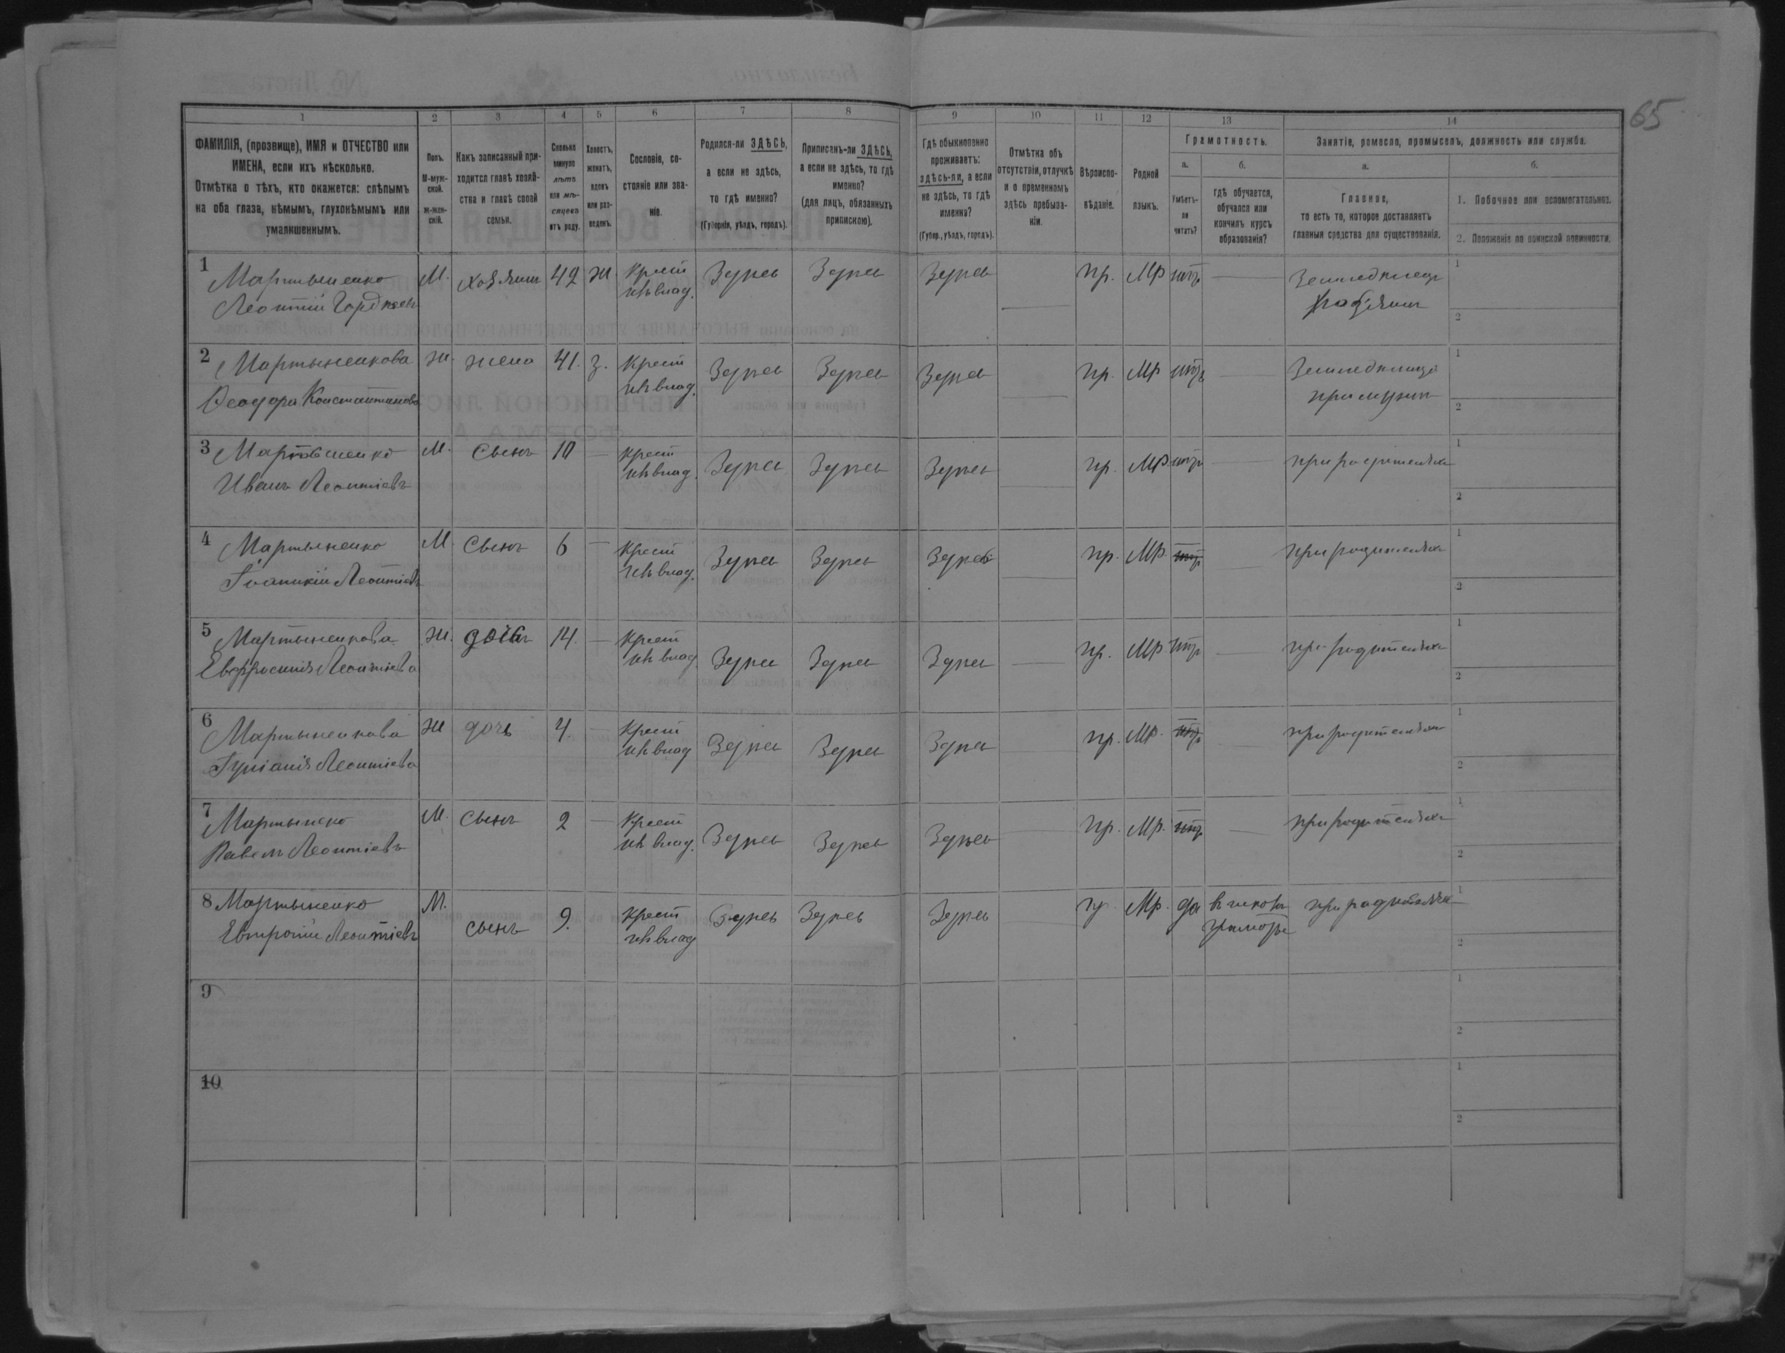 65
1 2 3 4 5 6 7 8 9 10 11 12 13 14
ФАМИЛІЯ, (прозвище), ИМЯ и ОТЧЕСТВО или
ИМЕНА, если ихъ нѣсколько.
Отмѣтка о тѣхъ, кто окажется: слѣпымъ
на оба глаза, нѣмымъ, глухонѣмымъ или
умалишеннымъ.
Полъ.
М-муж-
ской.
ж-жен-
скій.
Какъ записанный при-
ходится главѣ хозяй-
ства и главѣ своей
семьи.
Сколько
минуло
лѣтъ
или мѣ-
сяцевъ
отъ роду.
Холостъ,
женатъ,
вдовъ
или раз-
веденъ.
Сословіе, со-
стояніе или зва-
ніе.
Родился-ли ЗДѢСЬ,
а если не здѣсь,
то гдѣ именно?
(Губернія, уѣздъ, городъ).
Приписанъ-ли ЗДѢСЬ,
а если не здѣсь, то гдѣ
именно?
(для лицъ, обязанныхъ
припискою).
Гдѣ обыкновенно
проживаетъ:
здѣсь-ли, а если
не здѣсь, то гдѣ
именно?
(Губер., уѣздъ, городъ).
Отмѣтка объ
отсутствіи, отлучкѣ
и о временномъ
здѣсь пребыва-
ніи.
Вѣроиспо-
вѣданіе.
Родной
языкъ.
Грамотность.
а.
Умѣетъ-
ли
читать?
б.
гдѣ обучается,
обучался или
кончилъ курсъ
образованія?
Занятіе, ремесло, промыселъ, должность или служба.
а.
Главное,
то есть то, которое доставляетъ
главныя средства для существованія.
б.
1. Побочное или вспомогательное.
2. Положеніе по воинской повинности.
1 Мартыненко М. хозяинъ 42 ж Крест Здѣсь Здѣсь Здѣсь пр. Мр нѣтъ Земледѣлецъ 1
Леонтій Гордѣевъ изъ влад. хозяинъ 2
2 Мартыненкова ж. жена 41. з. Крест Здѣсь Здѣсь Здѣсь пр. Мр нѣтъ 1
Феодора Константинова изъ влад. при мужѣ 2
3 Мартыненко М. сынъ 10 крест Здѣсь Здѣсь Здѣсь пр. Мр нѣтъ при родителяхъ 1
Иванъ Леонтіевъ изъ влад. 2
4 Мартыненко М. Сынъ 6 Крест Здѣсь Здѣсь Здѣсь пр. Мр нѣтъ при родителяхъ 1
Іоанникій Леонтіевъ изъ влад. 2
5 Мартыненкова ж. дочь 14. Крест Здѣсь Здѣсь Здѣсь пр. Мр нѣтъ при родителяхъ 1
Евфросинія Леонтіева изъ влад. 2
6 Мартыненкова ж дочь 4 Крест Здѣсь Здѣсь Здѣсь пр. Мр. нѣтъ при родителяхъ 1
Леонтіева изъ влад 2
7 Мартыненко М. Сынъ 2 Крест Здѣсь Здѣсь Здѣсь пр. Мр. нѣтъ при родителяхъ 1
Павелъ Леонтіевъ изъ влад. 2
8 Мартыненко М. сынъ 9. Крест Здѣсь Здѣсь Здѣсь пр. Мр. да въ школѣ при родителяхъ 1
Леонтіевъ изъ влад грамоты 2
9 1
2
10 1
2